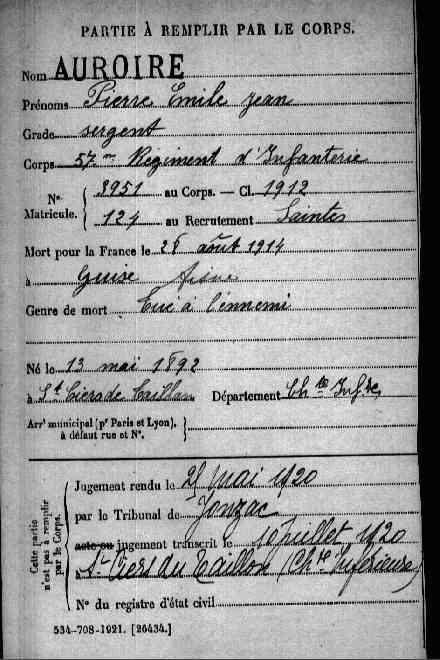 PARTIE À REMPLIR PAR LE CORPS.
Nom AUROIRE
Prénoms Pierre Emile Jean
Grade sergent
Corps 57me Régiment d'Infanterie
No Matricule. { 3951 au Corps. — Cl. 1912
124 au Recrutement Saintes
Mort pour la France le 28 août 1914
à Guise Aisne
Genre de mort Tué à l'ennemi
Né le 13 mai 1892
à St Ciers de Taillon Département Ch te Infre
Arrt municipal (pr Paris et Lyon), à défaut rue et No. }
Cette partie n'est pas à remplir par le Corps.
Jugement rendu le 25 Mai 1920
par le Tribunal de Jonzac
acte ou jugement transcrit le 10 juillet 1920
à St Ciers du Taillon (Chte Inférieure)
No du registre d'état civil
534-708-1921. [26434.]